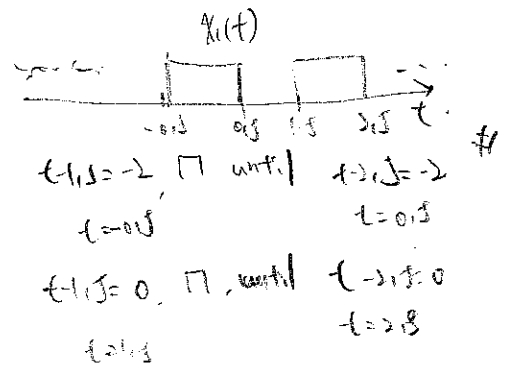 x₁(t)
-0,5 0,5 1,5 2,5 t
t-1,5=-2, ⊓ until t-2,5=-2
t=-0,5 t=0,5
t-1,5=0, ⊓, until t-2,5=0
t=1,5 t=2,5